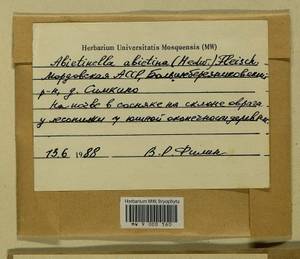 Herbarium Universitatis Mosquensis (MW)
Abietinella abietina (Hedw.) Fleisch.
Мордовская АССР, Большеберезниковский
р-н, д. Симкино
На почве в сосняке на склоне оврага
у лесопилки у южной оконечности деревни.
15.6 1988 В.Р. Филин
Herbarium MW, Bryophyta